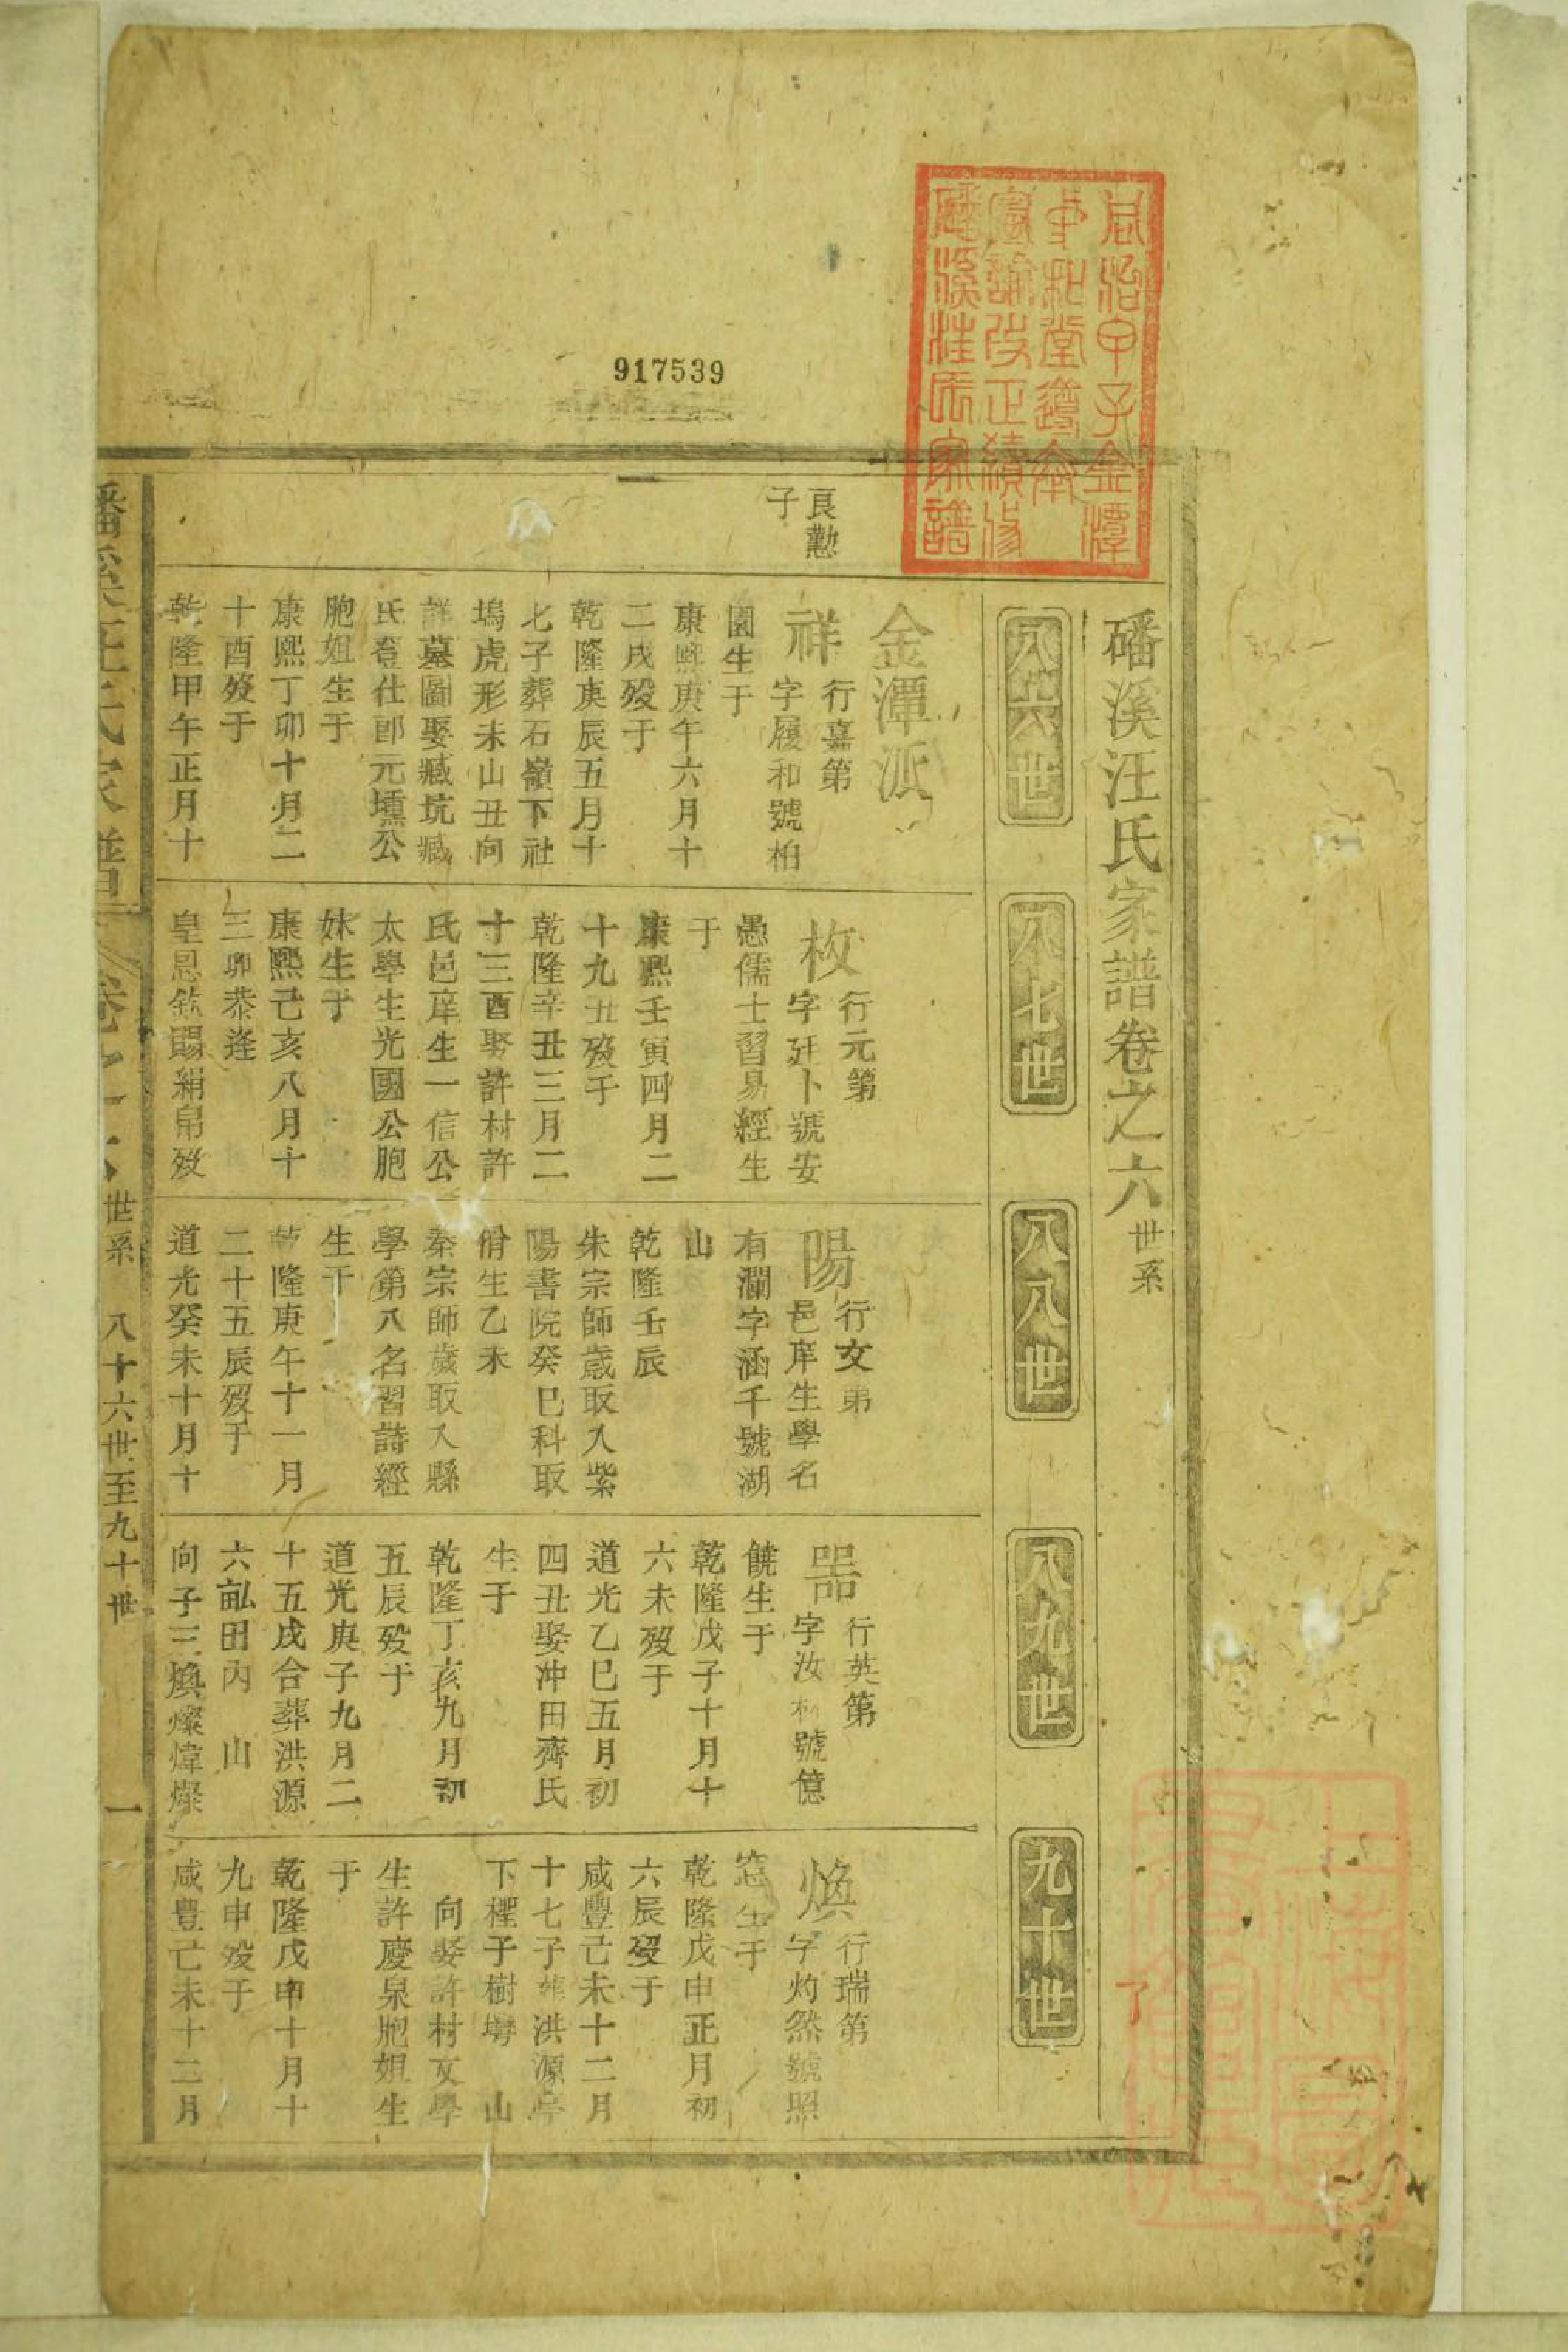 917539
磻溪汪氏家譜卷之六世系
八六世
八七世
八八世
八九世
九十世
良懃
子
金潭派
祥
行嘉第
字履和號柏
園生于
康熙庚午六月十
二戌歿于
乾隆庚辰五月十
七子葬石嶺下社
塢虎形未山丑向
詳墓圖娶臧坑臧
氏登仕郎元壎公
胞姐生于
康熙丁卯十月二
十酉歿于
乾隆甲午正月十
枚
行元第
字廷卜號安
愚儒士習易經生
于
康熙壬寅四月二
十九丑歿于
乾隆辛丑三月二
十三酉娶許村許
氏邑庠生一信公
太學生光國公胞
妹生于
康熙己亥八月十
三卯恭逢
皇恩欽賜絹帛歿
陽
行文第
邑庠生學名
有瀾字涵千號湖
山
乾隆壬辰
朱宗師歲取入紫
陽書院癸巳科取
佾生乙未
秦宗師歲取入縣
學第八名習詩經
生于
乾隆庚午十一月
二十五辰歿于
道光癸未十月十
器
行英第
字汝 號億
饒生于
乾隆戊子十月十
六未歿于
道光乙巳五月初
四丑娶沖田齊氏
生于
乾隆丁亥九月初
五辰歿于
道光庚子九月二
十五戌合葬洪源
六畝田內 山
向子三煥燦煒燦
煥
行瑞第
字灼然號照
生于
乾隆戊申正月初
六辰歿于
咸豐己未十二月
十七子葬洪源亭
下檉子樹塝 山
向娶許村文學
生許慶泉胞姐生
于
乾隆戊申十月十
九申歿于
咸豐己未十二月
磻溪汪氏家譜 卷之六 世系 八十六世至九十世 一